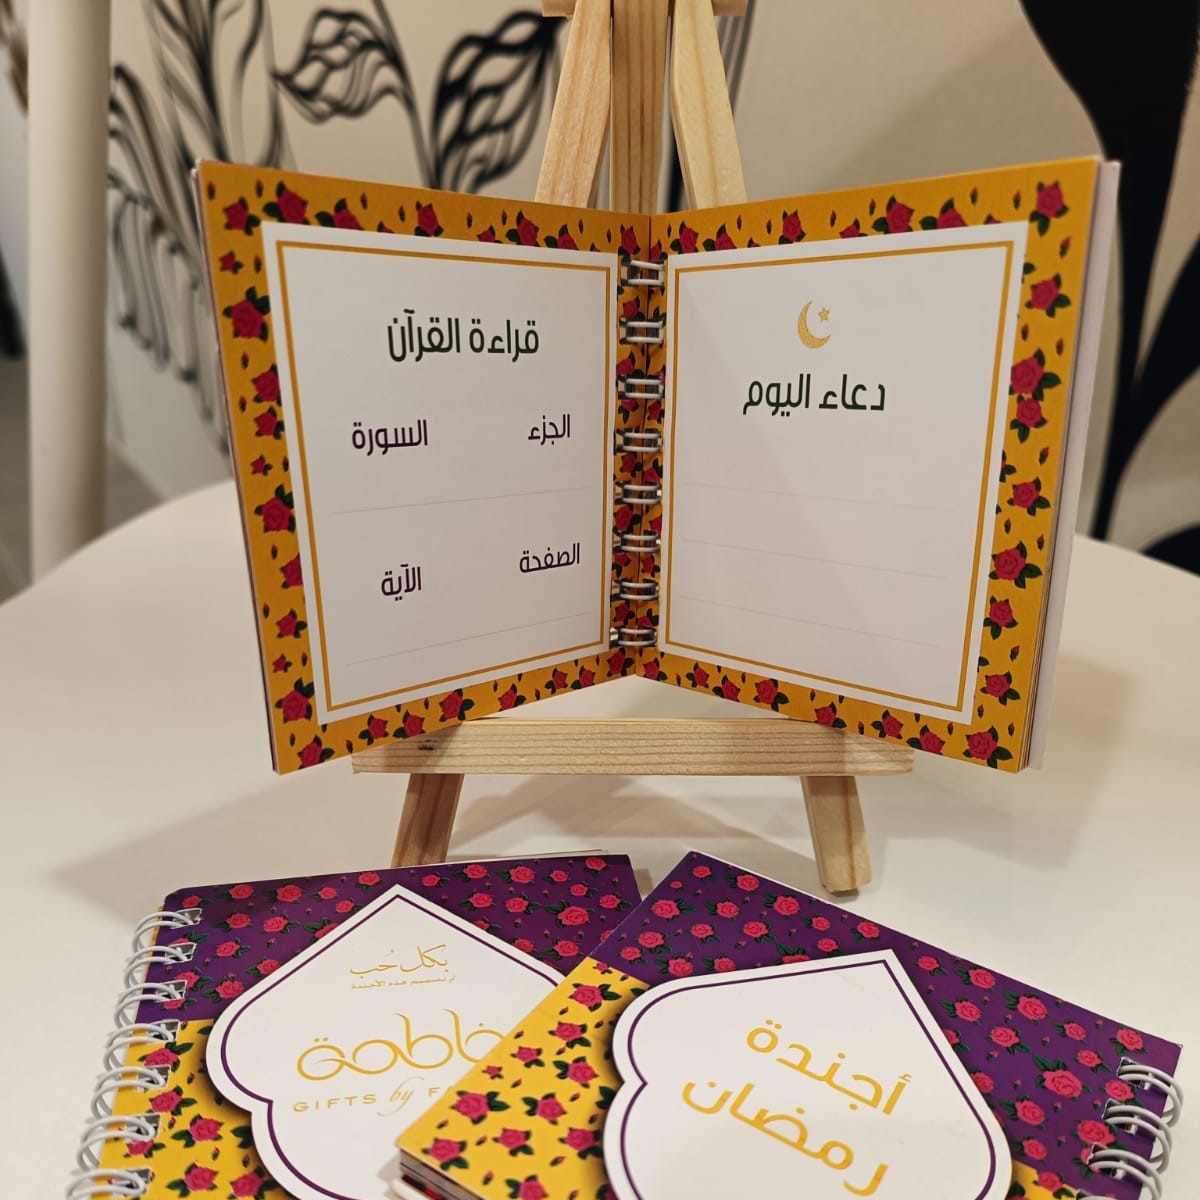 دعاء اليوم
قراءة القرآن
الجزء السورة
الصفحة الآية
بكل حُب
تم تصميم هذه الأجندة
فاطمة
GIFTS by F
أجندة
رمضان